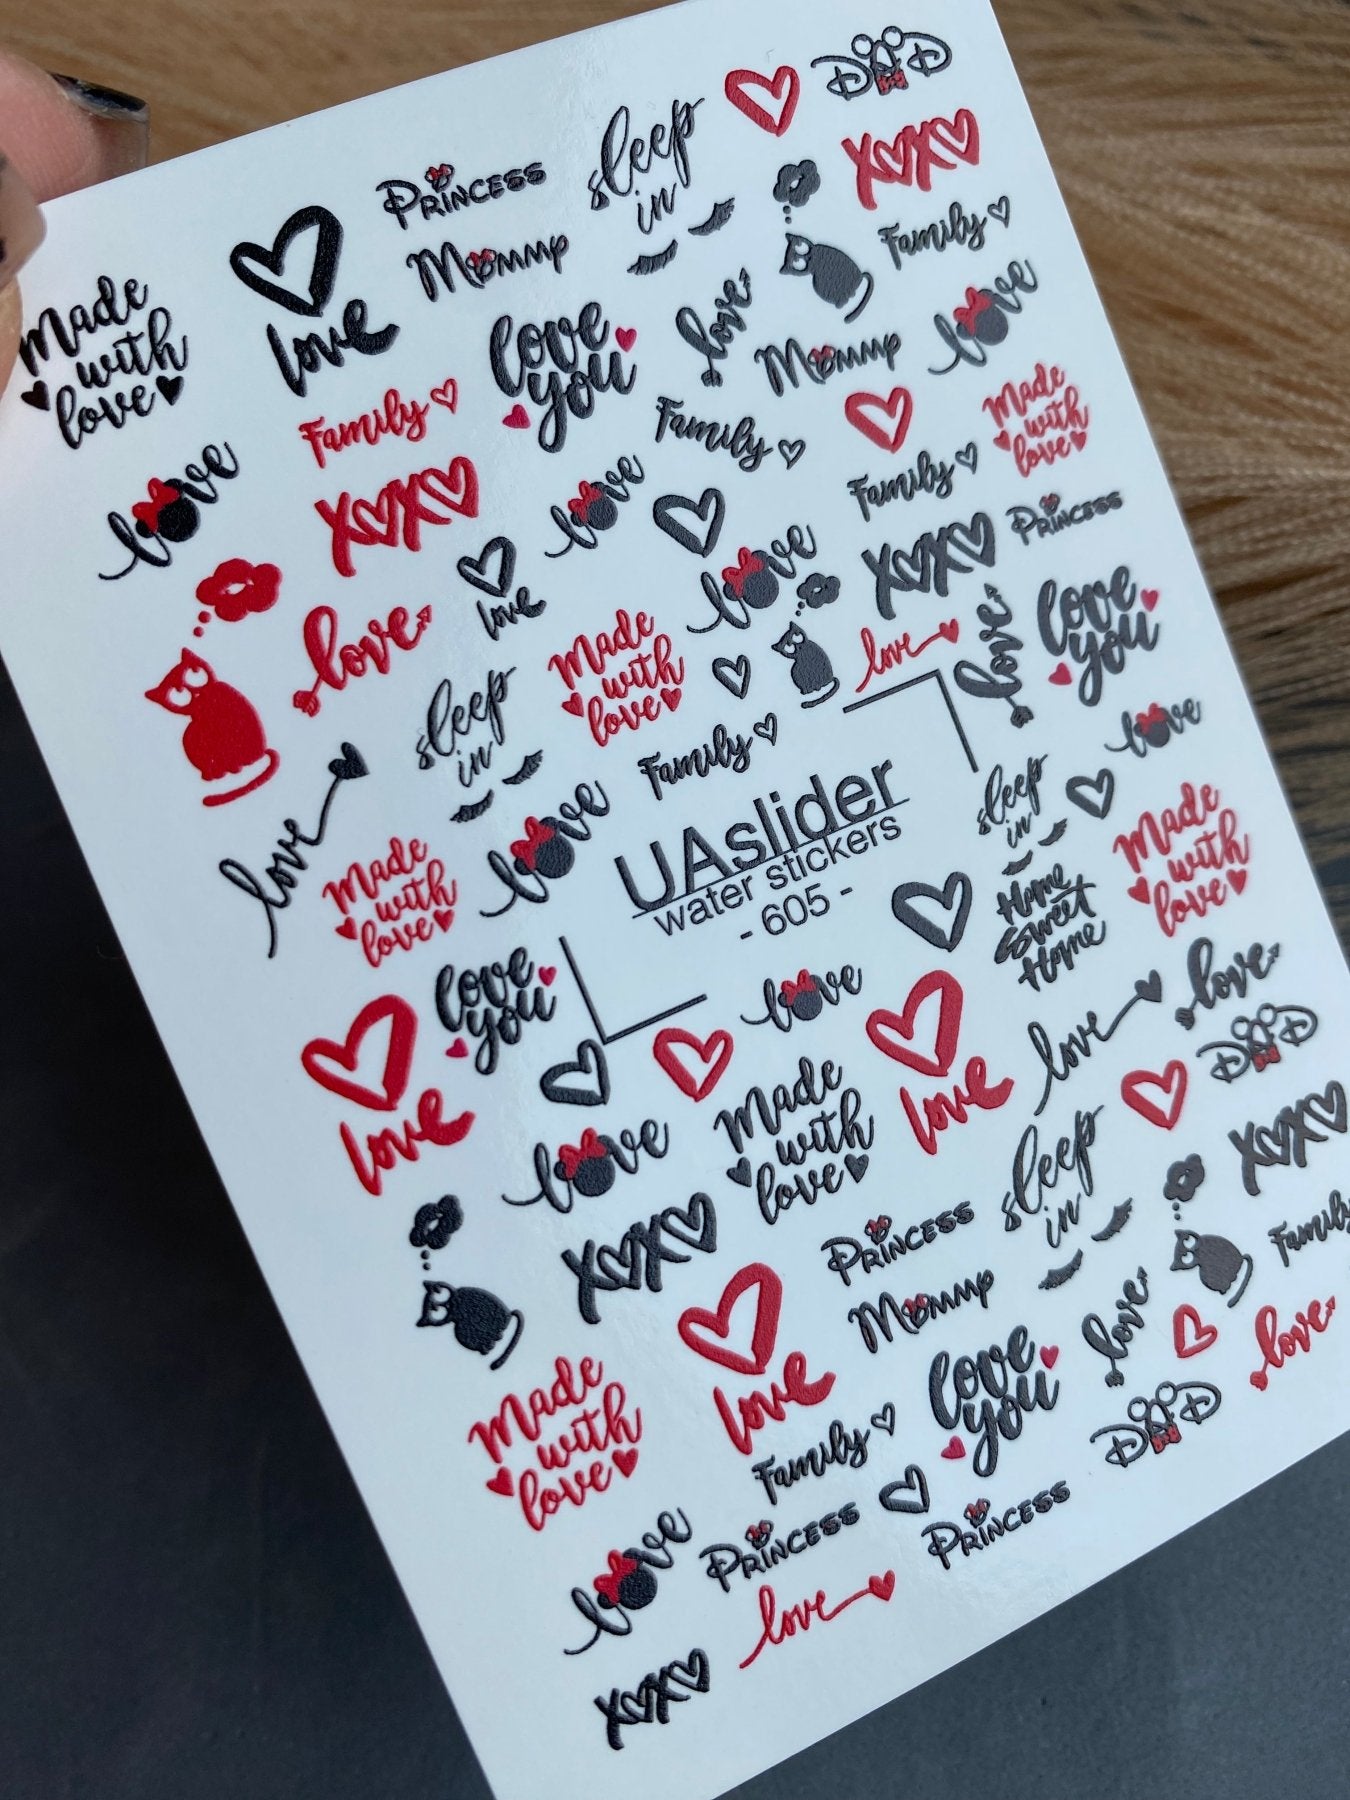 DAD
sleep
in
Princess
XOXO
Mommy
Family
Made
with
love
love
love
you
love
love
Mommy
Family
Made
with
love
Family
Family
love
XOXO
love
Princess
love
XOXO
love
love
you
love
Made
with
love
love
love
sleep
in
Family
love
love
sleep
in
Made
with
love
UAslider
water stickers
- 605 -
Made
with
love
love
Home
Sweet
Home
love
you
love
love
love
DAD
love
love
Made
with
love
XOXO
love
sleep
in
XOXO
Princess
Family
Mommy
love
love
love
Made
with
love
love
you
DAD
Family
Princess
Princess
love
love
XOXO